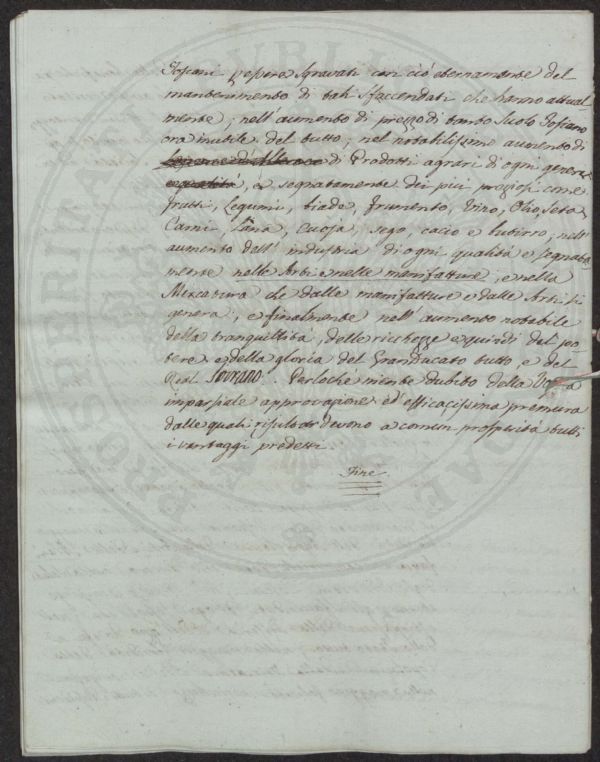 Toscani, essere sgravati con ciò eternamente del
mantenimento di tali sfaccendati che hanno attual
mente; nell'aumento di prezzo di tanto suolo Toscano
ora inutile del tutto; nel notabilissimo aumento di
di Prodotti agrari di ogni genere
e qualità, e segnatamente dei più preziosi come
frutti, Legumi, biade, frumento, Vino, Olio, Seta,
Carni, Lana, Cuoja, sego, cacio e butirro; nell'
aumento dell'industria di ogni qualità e segnata
mente nelle Arti e nelle manifatture, e nella
Mercatura che dalle manifatture e dalle Arti si
genera, e finalmente nell'aumento notabile
della tranquillità, delle ricchezze e quindi del po-
tere e della gloria del Granducato tutto, e del
Real Sovrano. Perloché niente dubito della
imparziale approvazione ed efficacissima premura
dalle quali risultar devono a comun prosperità tutti
i vantaggi predetti.
Fine